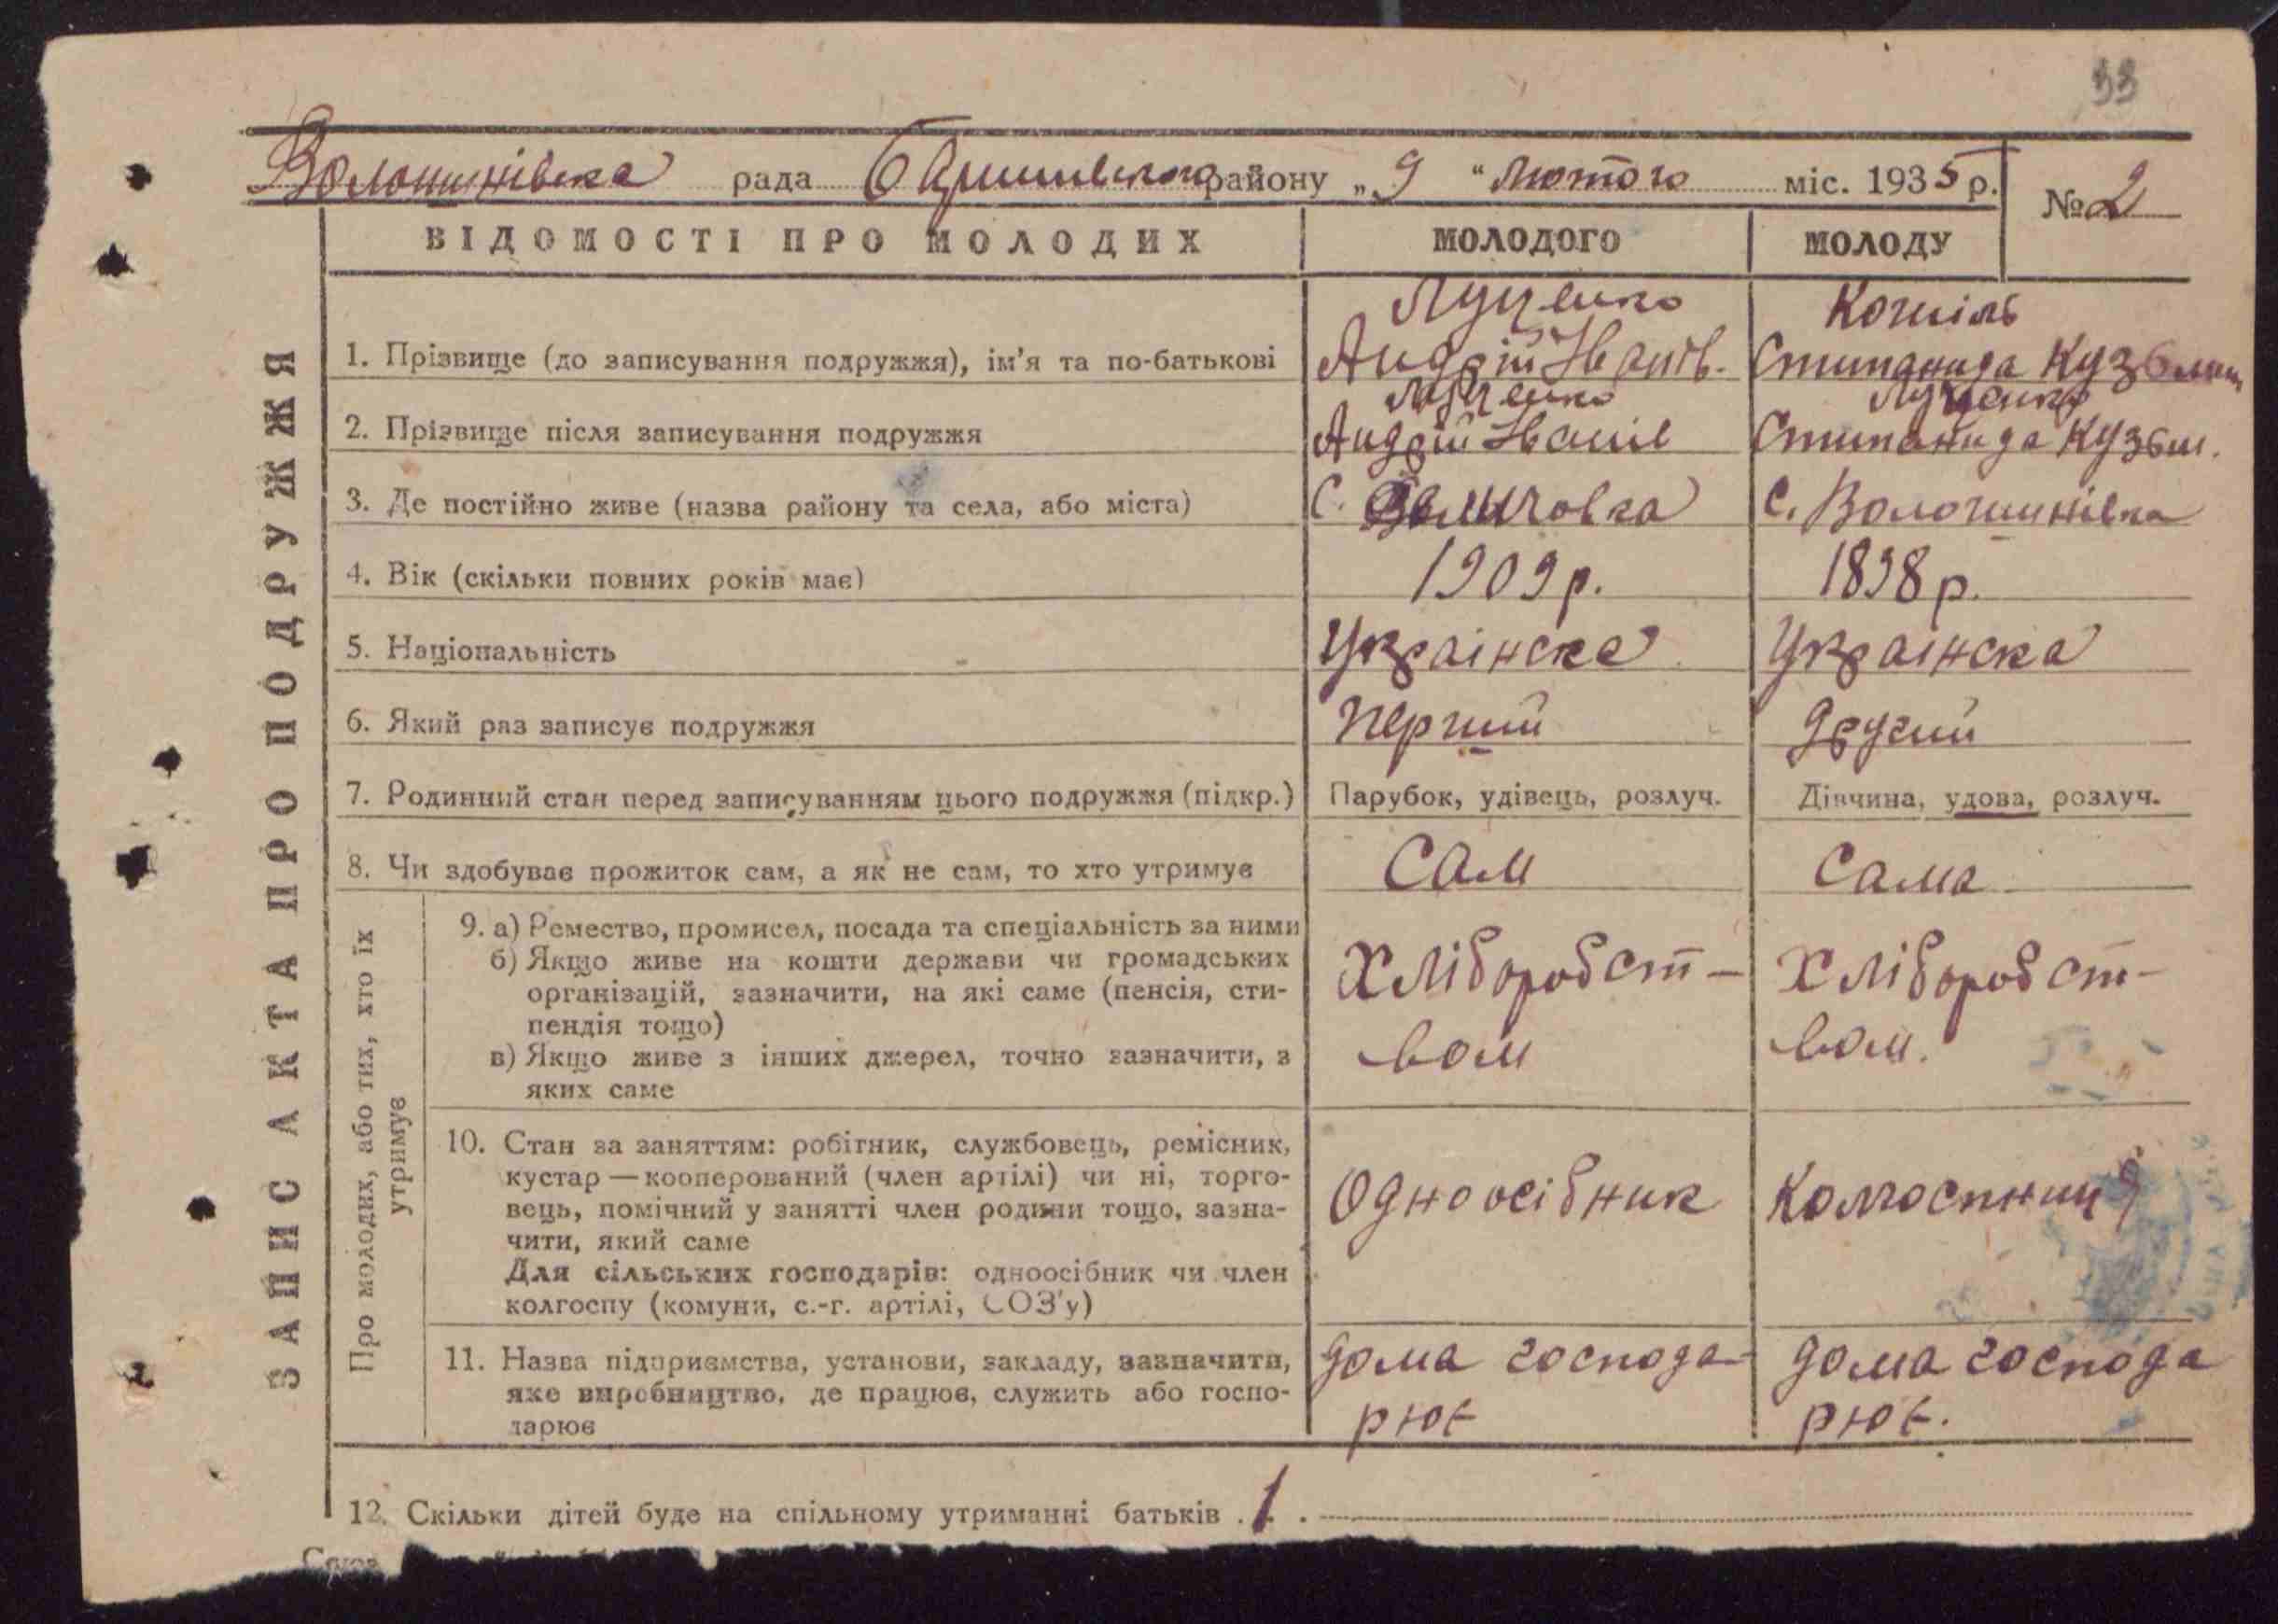 33
Волошинівка рада Баришівського району „9“ Лютого міс. 1935 р.
№ 2
ЗАПИС АКТА ПРО ПОДРУЖЖЯ
ВІДОМОСТІ ПРО МОЛОДИХ МОЛОДОГО МОЛОДУ
Луценко Кошіль
1. Прізвище (до записування подружжя), ім’я та по-батькові Андрій Іванів. Степанида Кузьмин
Луценко Луценко
2. Прізвище після записування подружжя Андрій Іванів Степанида Кузьм.
3. Де постійно живе (назва району та села, або міста) С. С. Волошинівка
4. Вік (скільки повних років має) 1909 р. 1898 р.
5. Національність Українска Українска
6. Який раз записує подружжя Перший Другий
7. Родинний стан перед записуванням цього подружжя (підкр.) Парубок, удівець, розлуч. Дівчина, удова, розлуч.
8. Чи здобуває прожиток сам, а як не сам, то хто утримує Сам Сама
Про молодих, або тих, хто їх утримує
9. а) Ремество, промисел, посада та спеціальність за ними
б) Якщо живе на кошти держави чи громадських Хліборобст- Хліборобст-
організацій, зазначити, на які саме (пенсія, сти-
пендія тощо)
в) Якщо живе з інших джерел, точно зазначити, з вом вом.
яких саме
10. Стан за заняттям: робітник, службовець, ремісник,
кустар — кооперований (член артілі) чи ні, торго-
вець, помічний у занятті член родини тощо, зазна- Одноосібник Колгоспниця
чити, який саме
Для сільських господарів: одноосібник чи член
колгоспу (комуни, с.-г. артілі, СОЗ’у)
11. Назва підприємства, установи, закладу, зазначити, дома господа- дома господа
яке виробництво, де працює, служить або госпо- рює рює.
дарює
12. Скільки дітей буде на спільному утриманні батьків . 1 .